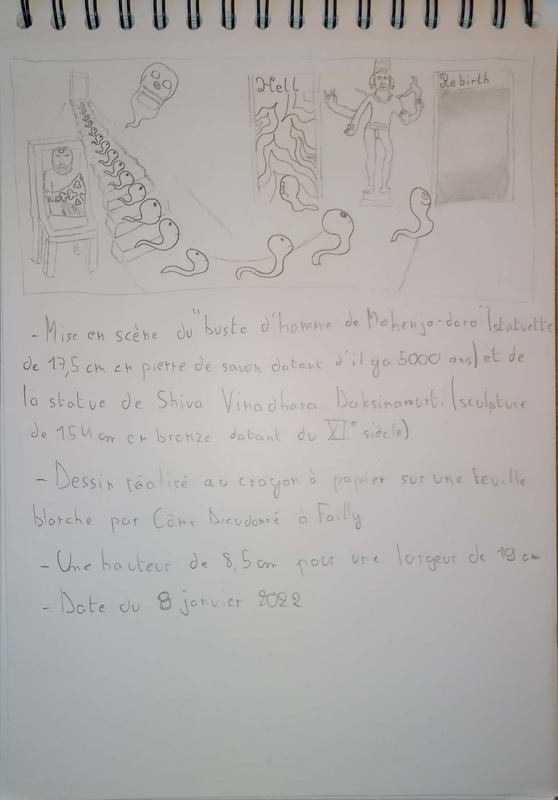 Hell
Rebirth
- Mise en scène du "buste d'homme de Mohenjo-daro" (statuette
de 17,5 cm en pierre de savon datant d'il y a 5000 ans) et de
la statue de Shiva Vinadhara Daksinamurti (sculpture
de 154 cm en bronze datant du XIe siècle).
- Dessin réalisé au crayon à papier sur une feuille
blanche par Côme Dieudonné à Failly
- Une hauteur de 8,5 cm pour une largeur de 19 cm
- Date du 8 janvier 2022